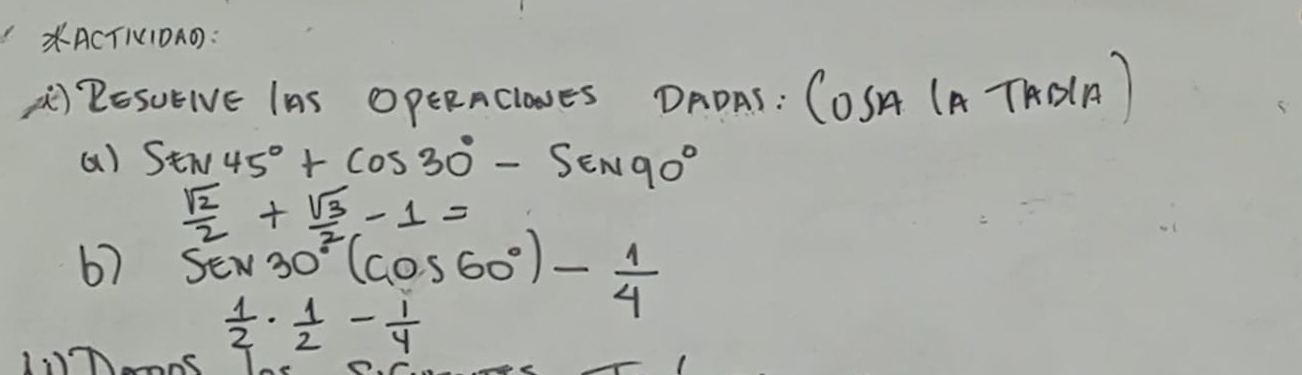 * ACTIVIDAD:
i) RESUELVE las OPERACIONES DADAS: (USA LA TABLA)
a) SEN 45° + COS 30° - SEN 90°
√2/2 + √3/2 - 1 =
b) SEN 30° (COS 60°) - 1/4
1/2 · 1/2 - 1/4
ii) Dados las